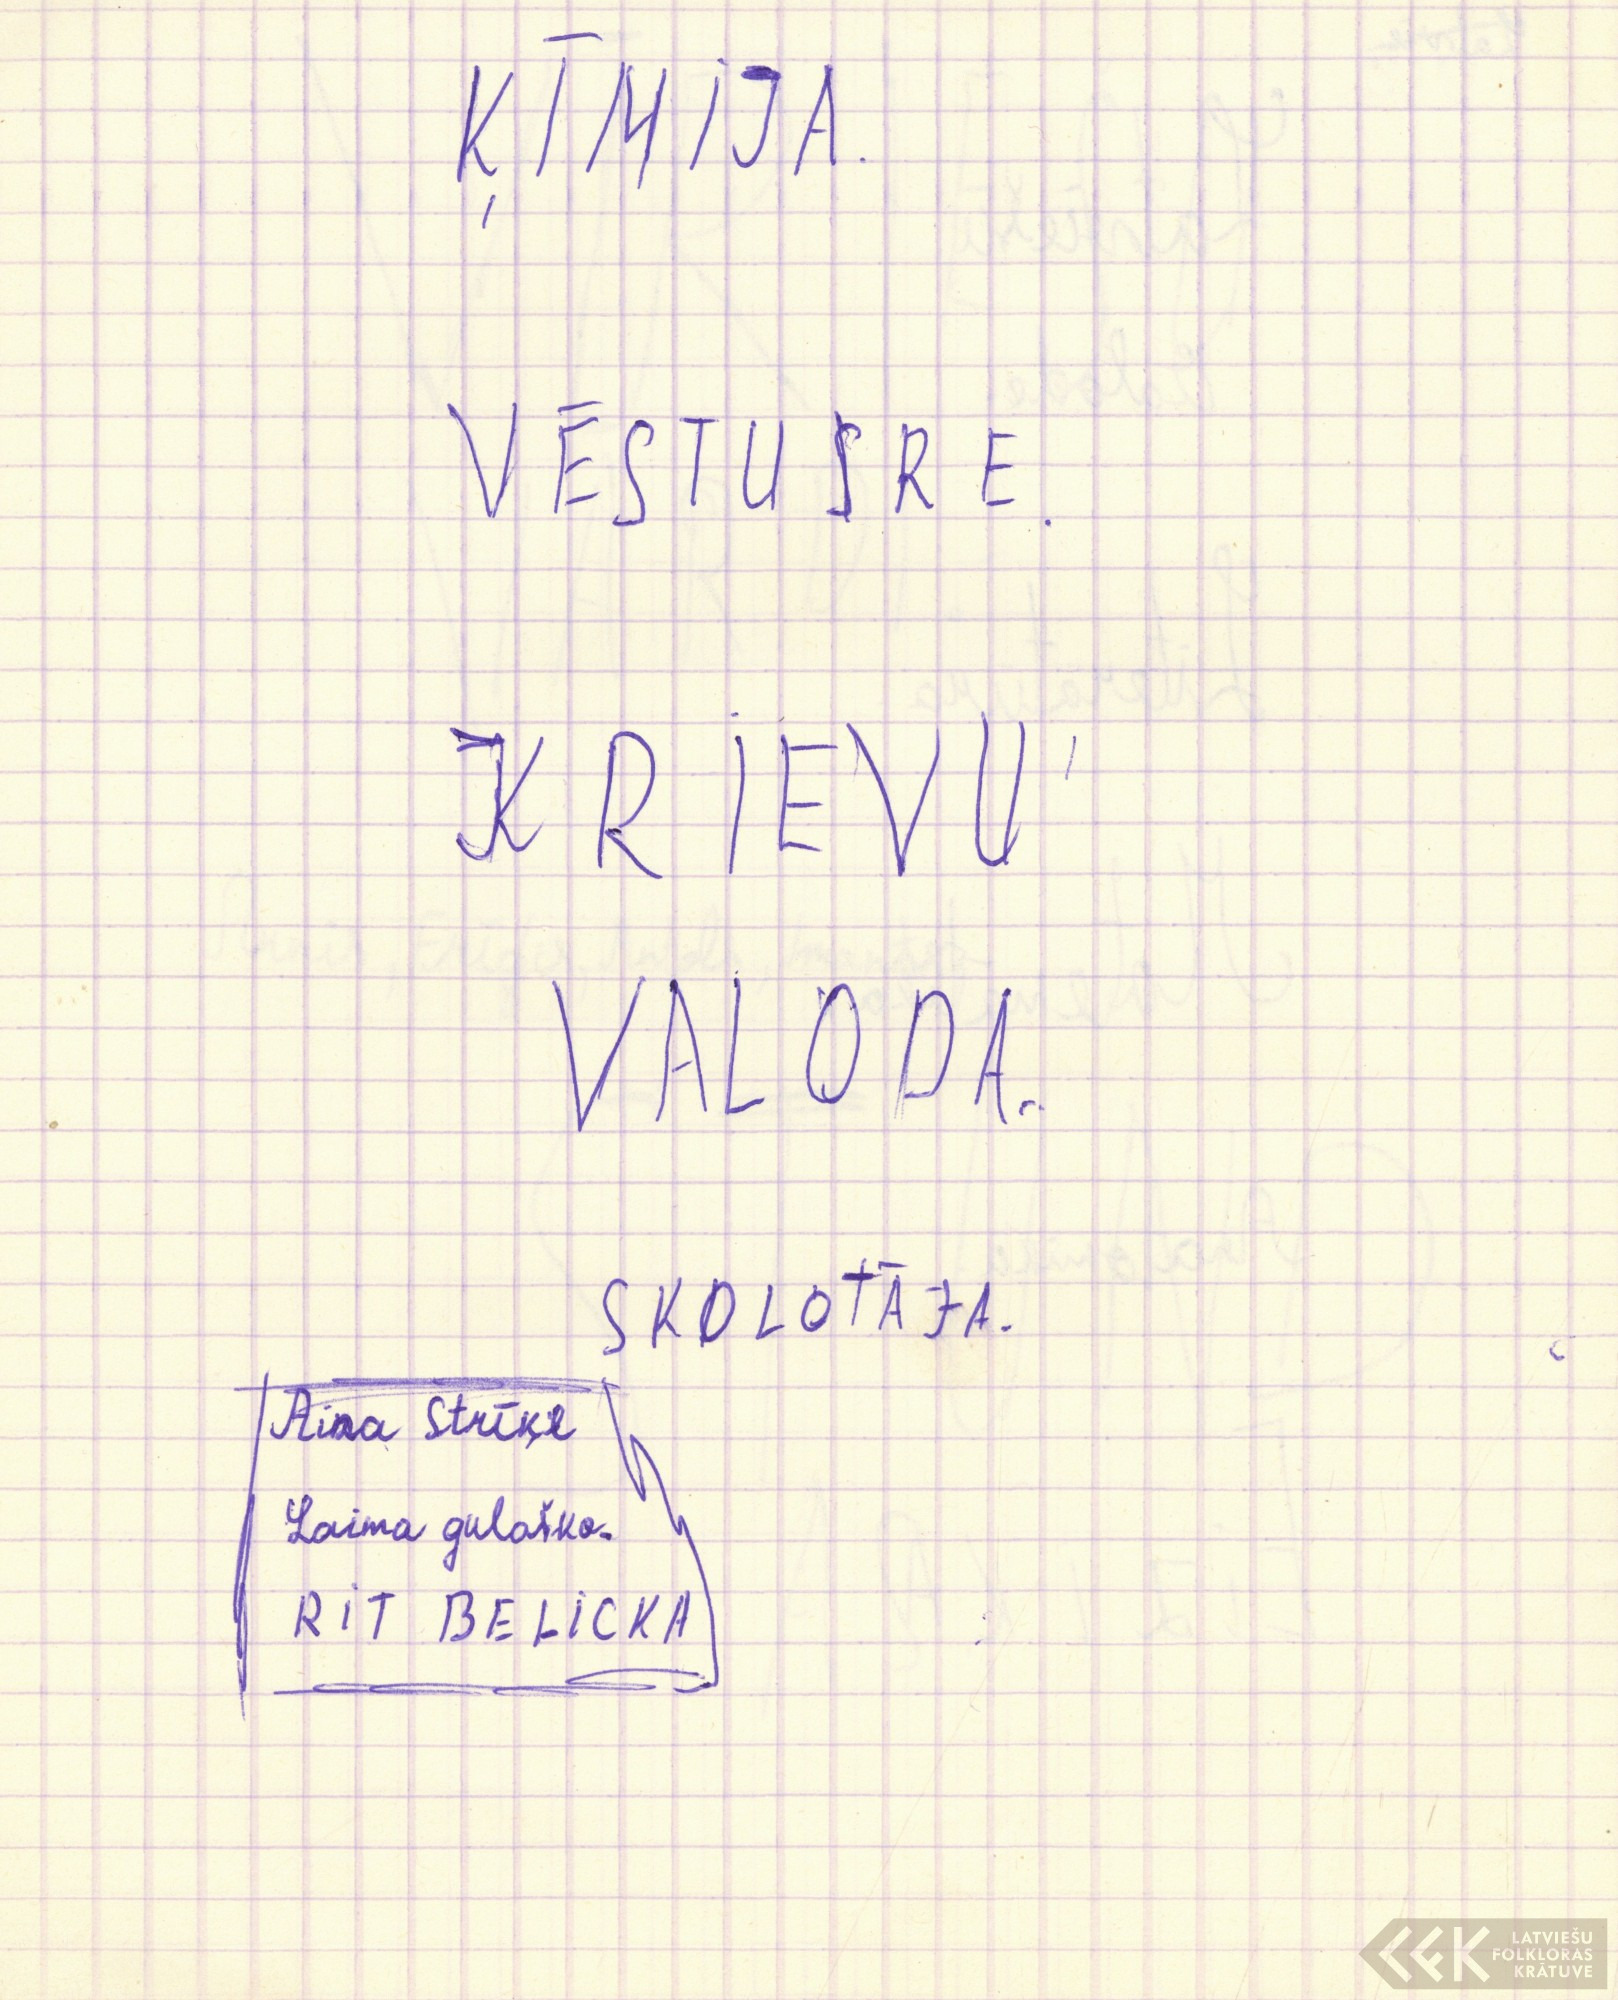 ĶĪMIJA.
VĒSTUSRE.
KRIEVU
VALODA.
SKOLOTĀJA.
Aina Strīķe
Laima gulaško.
RIT BELICKA
LATVIEŠU
FOLKLORAS
KRĀTUVE